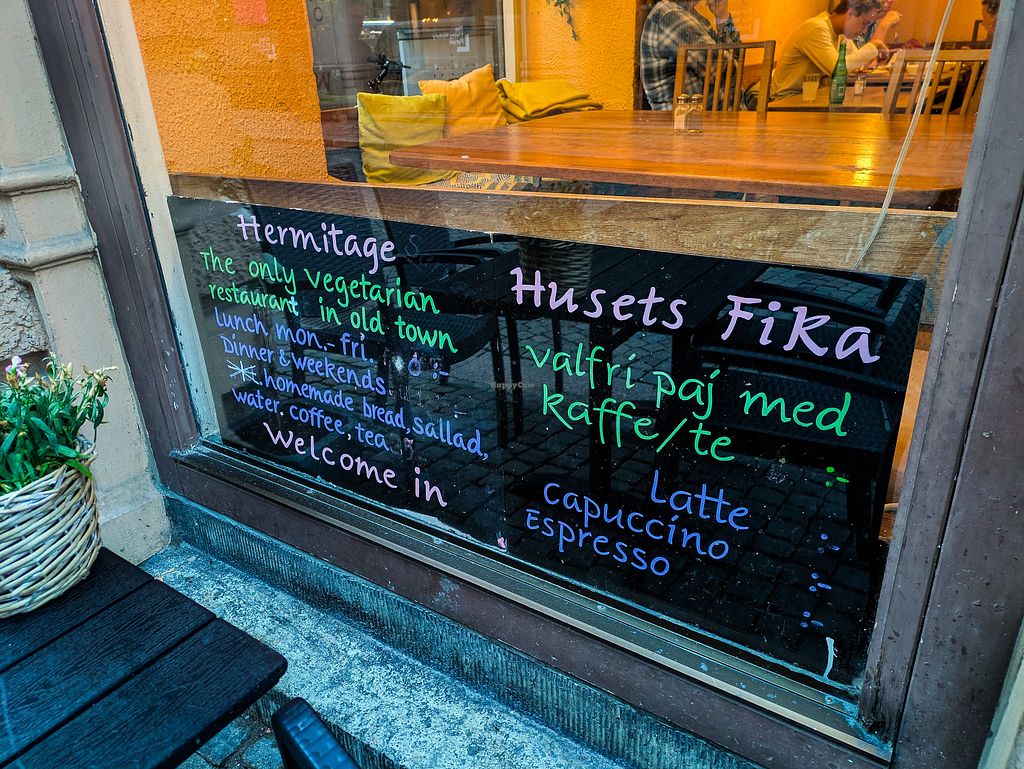 Hermitage
The only vegetarian
restaurant in old town
Lunch mon.- fri.
Dinner & weekends.
homemade bread, sallad,
water, coffee, tea.
Welcome in
Husets Fika
valfri paj med
kaffe/te
Latte
capuccino
Espresso
HappyCow